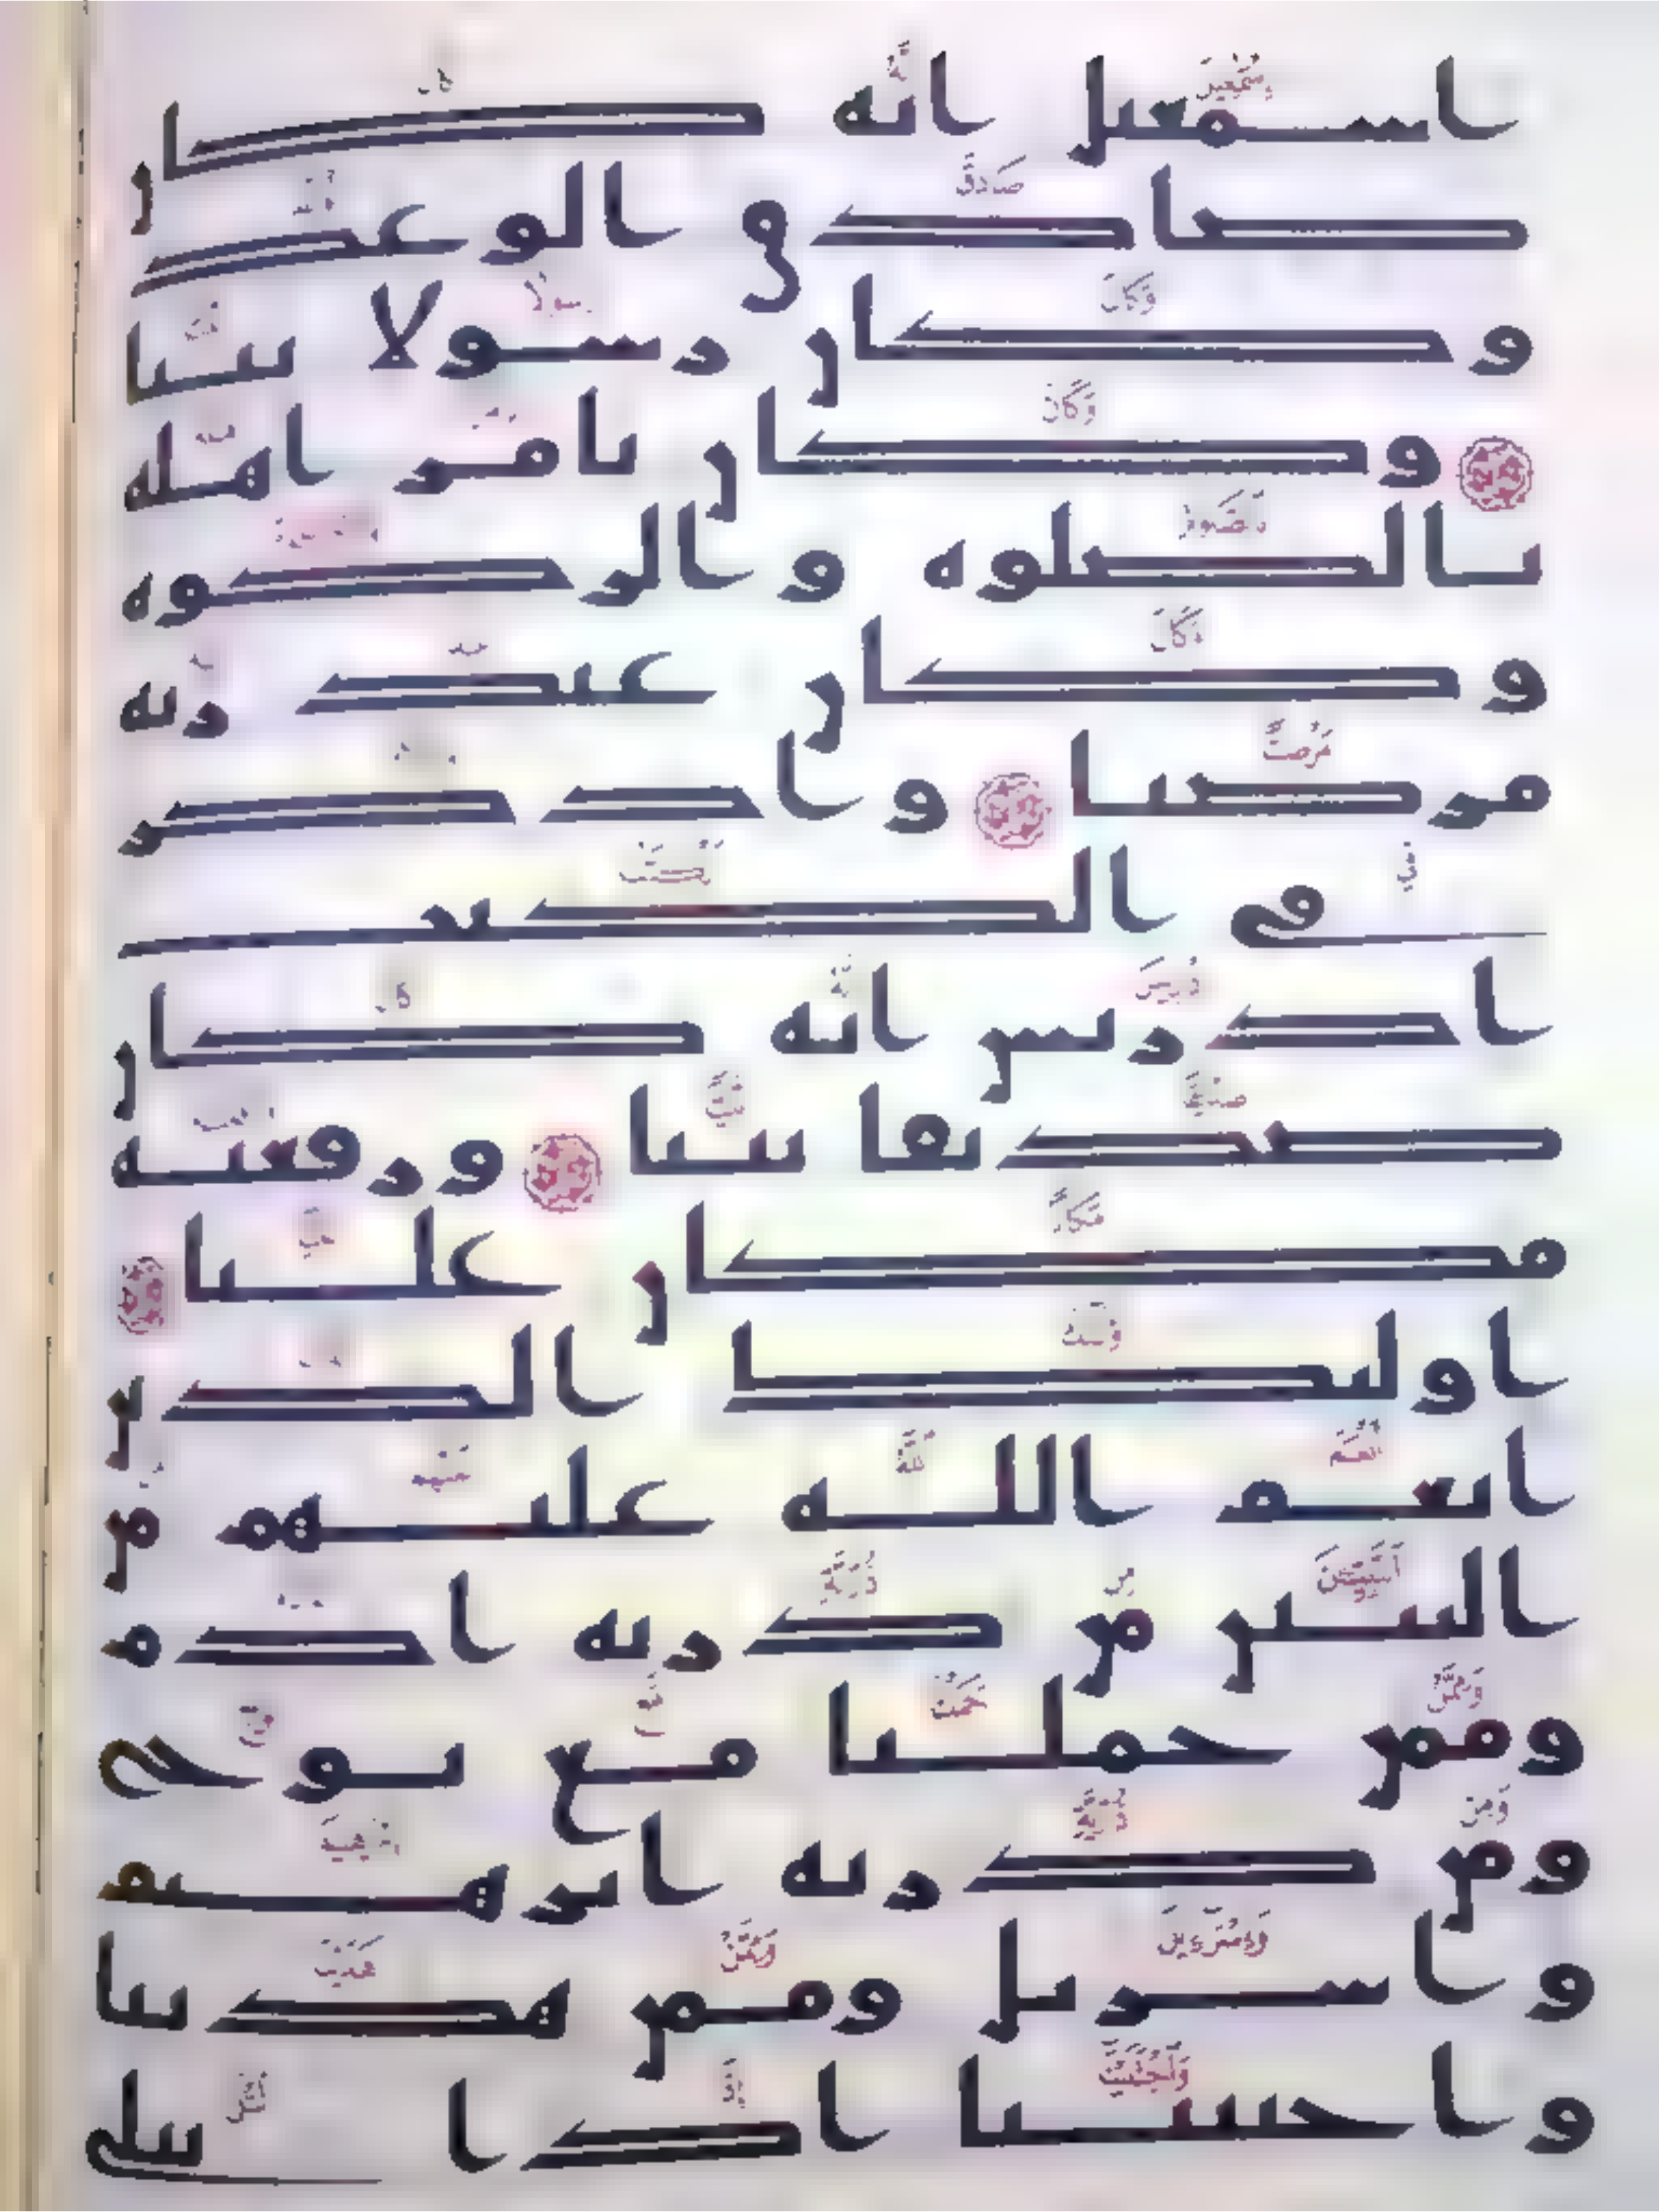 اسمعيل انه كان
صادق الوعد
وكان رسولا نبيا
وكان يامر اهله
بالصلوه والزكوه
وكان عند ربه
مرضيا واذكر
في الكتب
ادريس انه كان
صديقا نبيا ورفعنه
مكان عليا
اوليك الذين
انعم الله عليهم من
النبين من ذريه ادم
وممن حملنا مع نوح
ومن ذريه ابرهيم
واسريل وممن هدينا
واجتبينا اذا تتلى